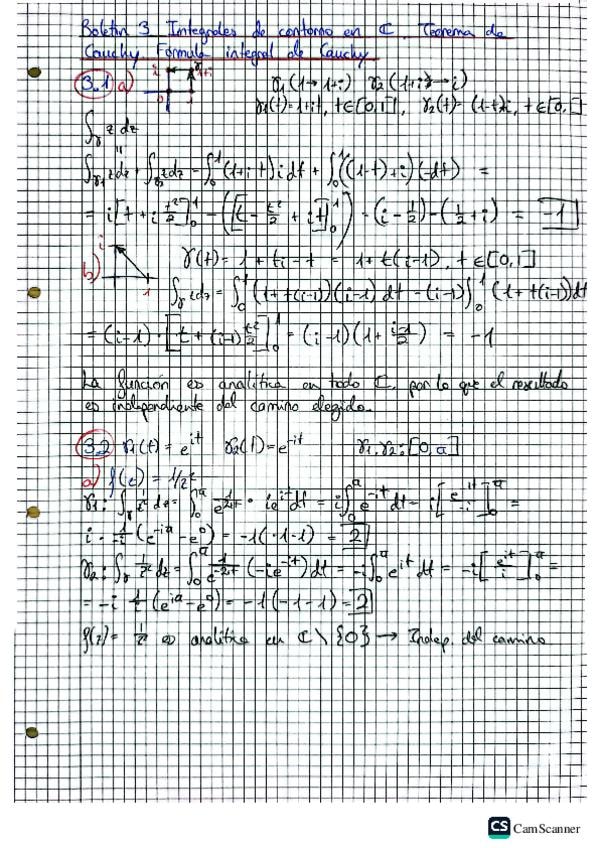 Boletín 3 Integrales de contorno en ℂ. Teorema de
Cauchy. Fórmula integral de Cauchy.
3.1 a) i 1+i 1 γ1(1→1+i) γ2(1+i→i)
γ1(t)=1+it, t∈[0,1], γ2(t)=(1-t)+i, t∈[0,1]
∫γ z dz
"
∫γ1 z dz + ∫γ2 z dz = ∫₀¹ (1+it) i dt + ∫₀¹ ((1-t)+i)(-dt) =
= i[t + i t²/2]₀¹ - ([t - t²/2 + it]₀¹) = (i - 1/2) - (1/2 + i) = -1
b) i 1 γ(t) = 1 + ti - t = 1 + t(i-1), t∈[0,1]
∫γ z dz = ∫₀¹ (1+t(i-1))(i-1) dt = (i-1) ∫₀¹ (1+t(i-1)) dt
= (i-1) · [t + (i-1) t²/2]₀¹ = (i-1)(1 + (i-1)/2) = -1
La función es analítica en todo ℂ, por lo que el resultado
es independiente del camino elegido.
3.2 γ1(t) = e^{it} γ2(t) = e^{-it} γ1, γ2: [0, a]
a) f(z) = 1/z²
γ1: ∫γ 1/z² dz = ∫₀ᵃ 1/e^{2it} · ie^{it} dt = i∫₀ᵃ e^{-it} dt = i[e^{-it}/-i]₀ᵃ =
i · 1/-i (e^{-ia} - e⁰) = -1(-1-1) = 2
γ2: ∫γ 1/z² dz = ∫₀ᵃ 1/e^{-2it} (-ie^{-it}) dt = -i∫₀ᵃ e^{it} dt = -i[e^{it}/i]₀ᵃ =
= -i 1/i (e^{ia} - e⁰) = -1(-1-1) = 2
f(z) = 1/z² es analítica en ℂ \ {0} → Indep. del camino
CS CamScanner